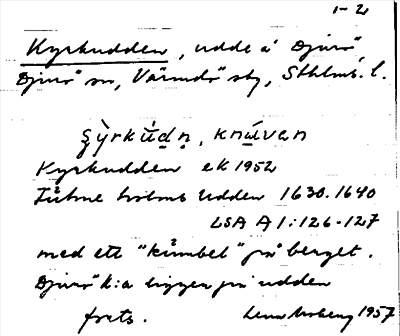 1-2
Kyrkudden, udde å Djurö
Djurö sn, Värmdö sky, Sthlms. l.
şỳrkúdn, knávan
Kyrkudden ek 1952
holms Udden 1630.1640
LSA A 1:126-127
med ett "kumbel" på berget.
Djurö k:a ligger på udden
1957